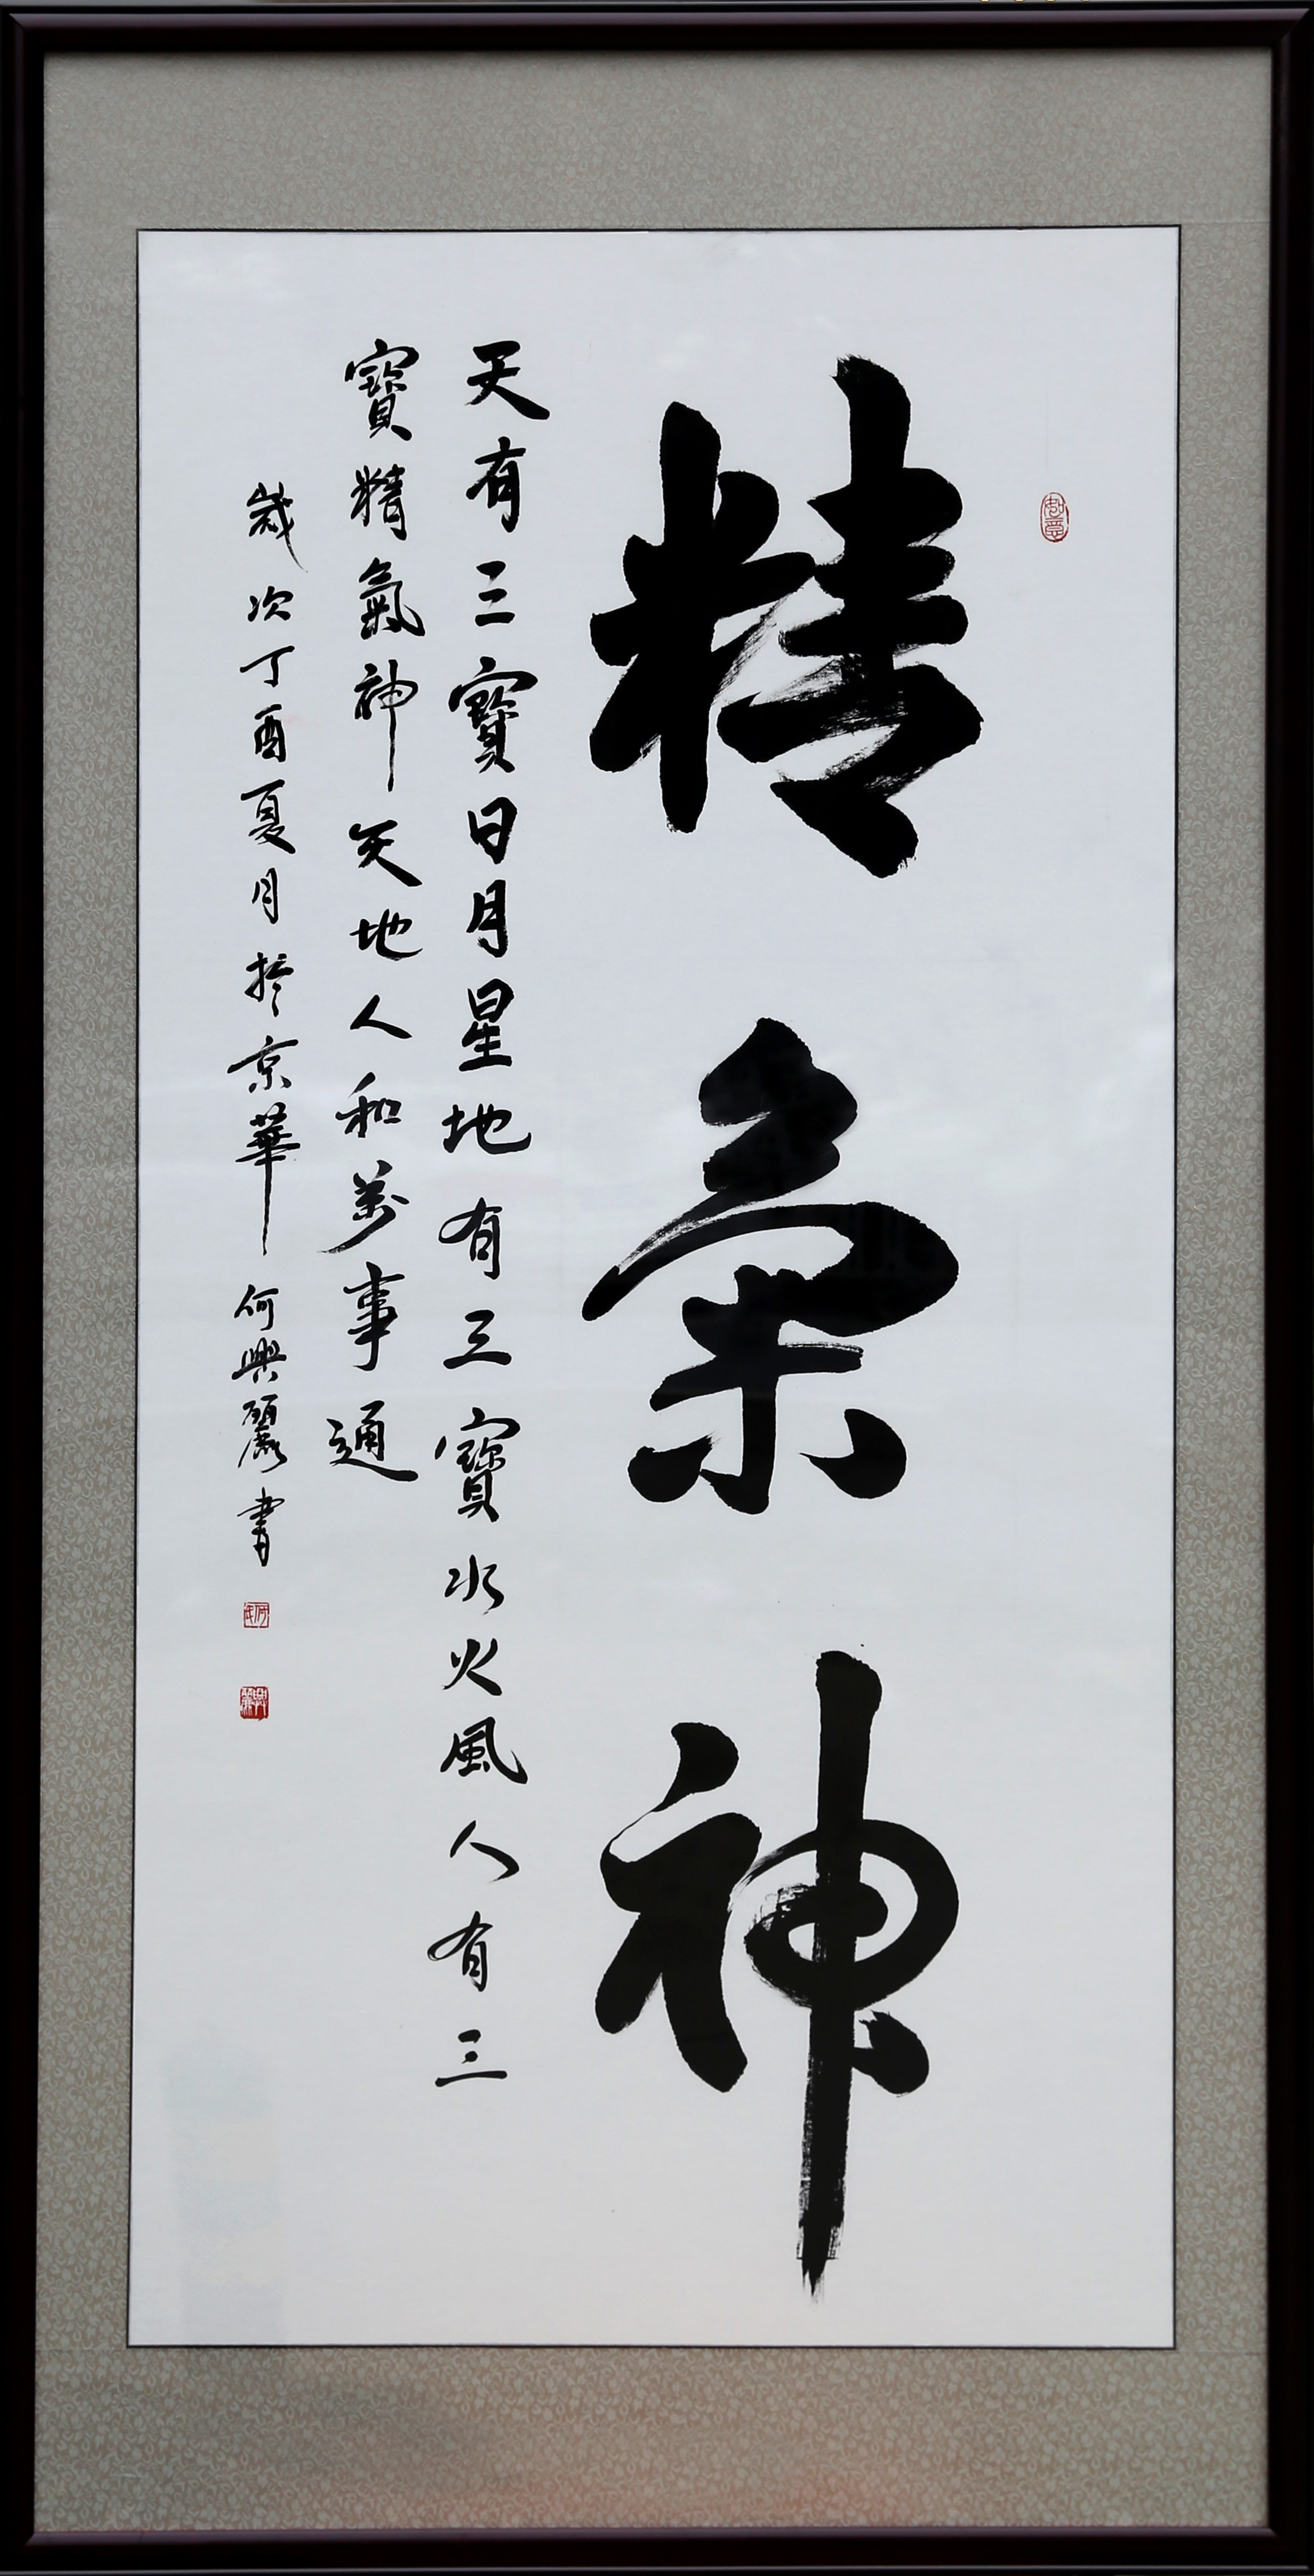 精氣神
天有三寶日月星地有三寶水火風人有三
寶精氣神天地人和萬事通
歲次丁酉夏月於京華何興麗書
如意
何氏
興麗